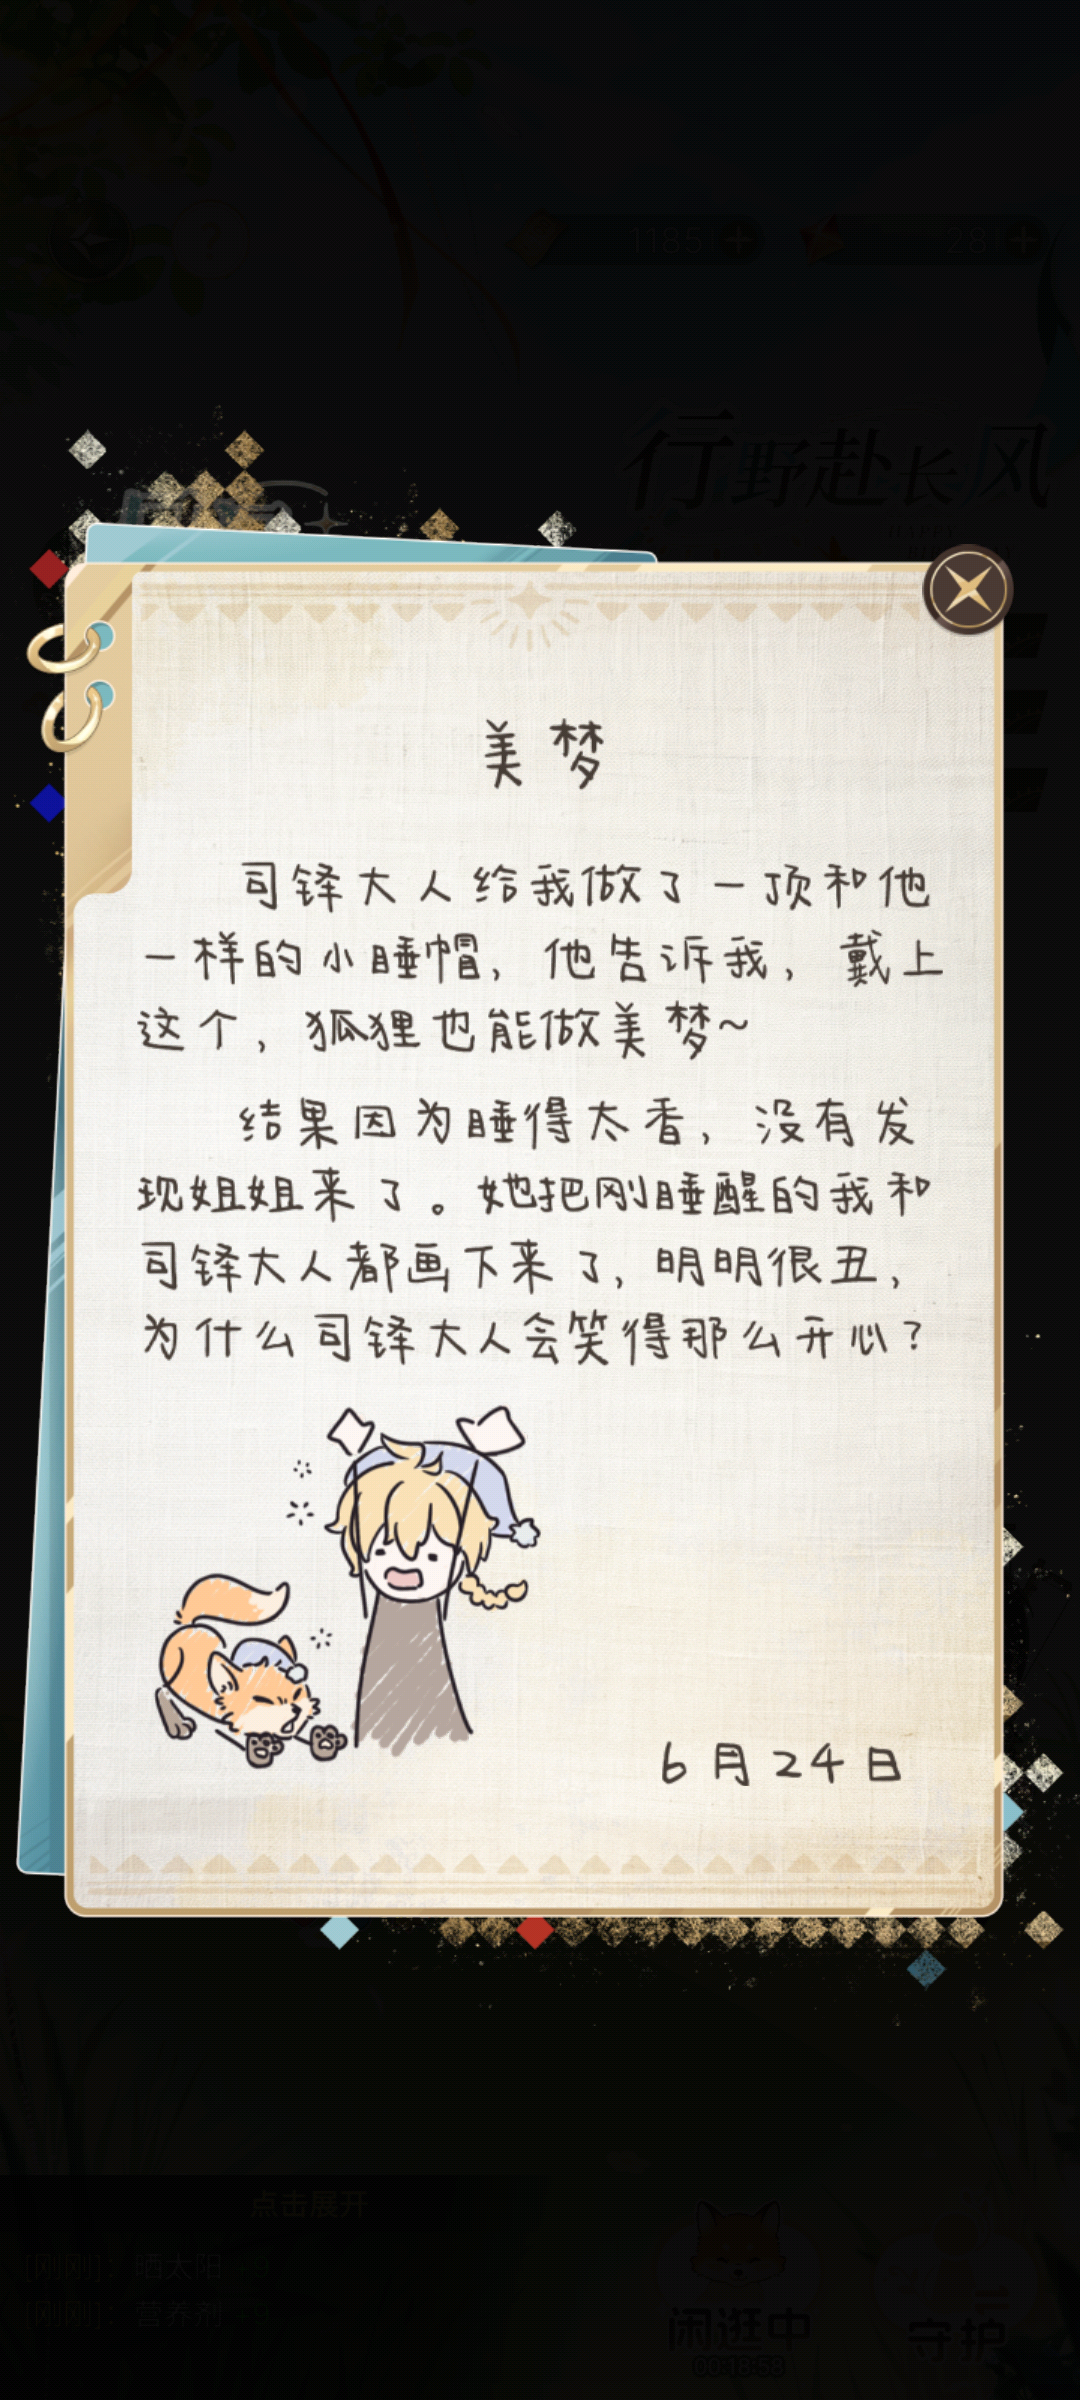 1185
28
行野赴长风
美梦
司铎大人给我做了一顶和他
一样的小睡帽，他告诉我，戴上
这个，狐狸也能做美梦~
结果因为睡得太香，没有发
现姐姐来了。她把刚睡醒的我和
司铎大人都画下来了，明明很丑，
为什么司铎大人会笑得那么开心？
6月24日
点击展开
[刚刚]：晒太阳
[刚刚]：营养剂
闲逛中
守护
00:18:58